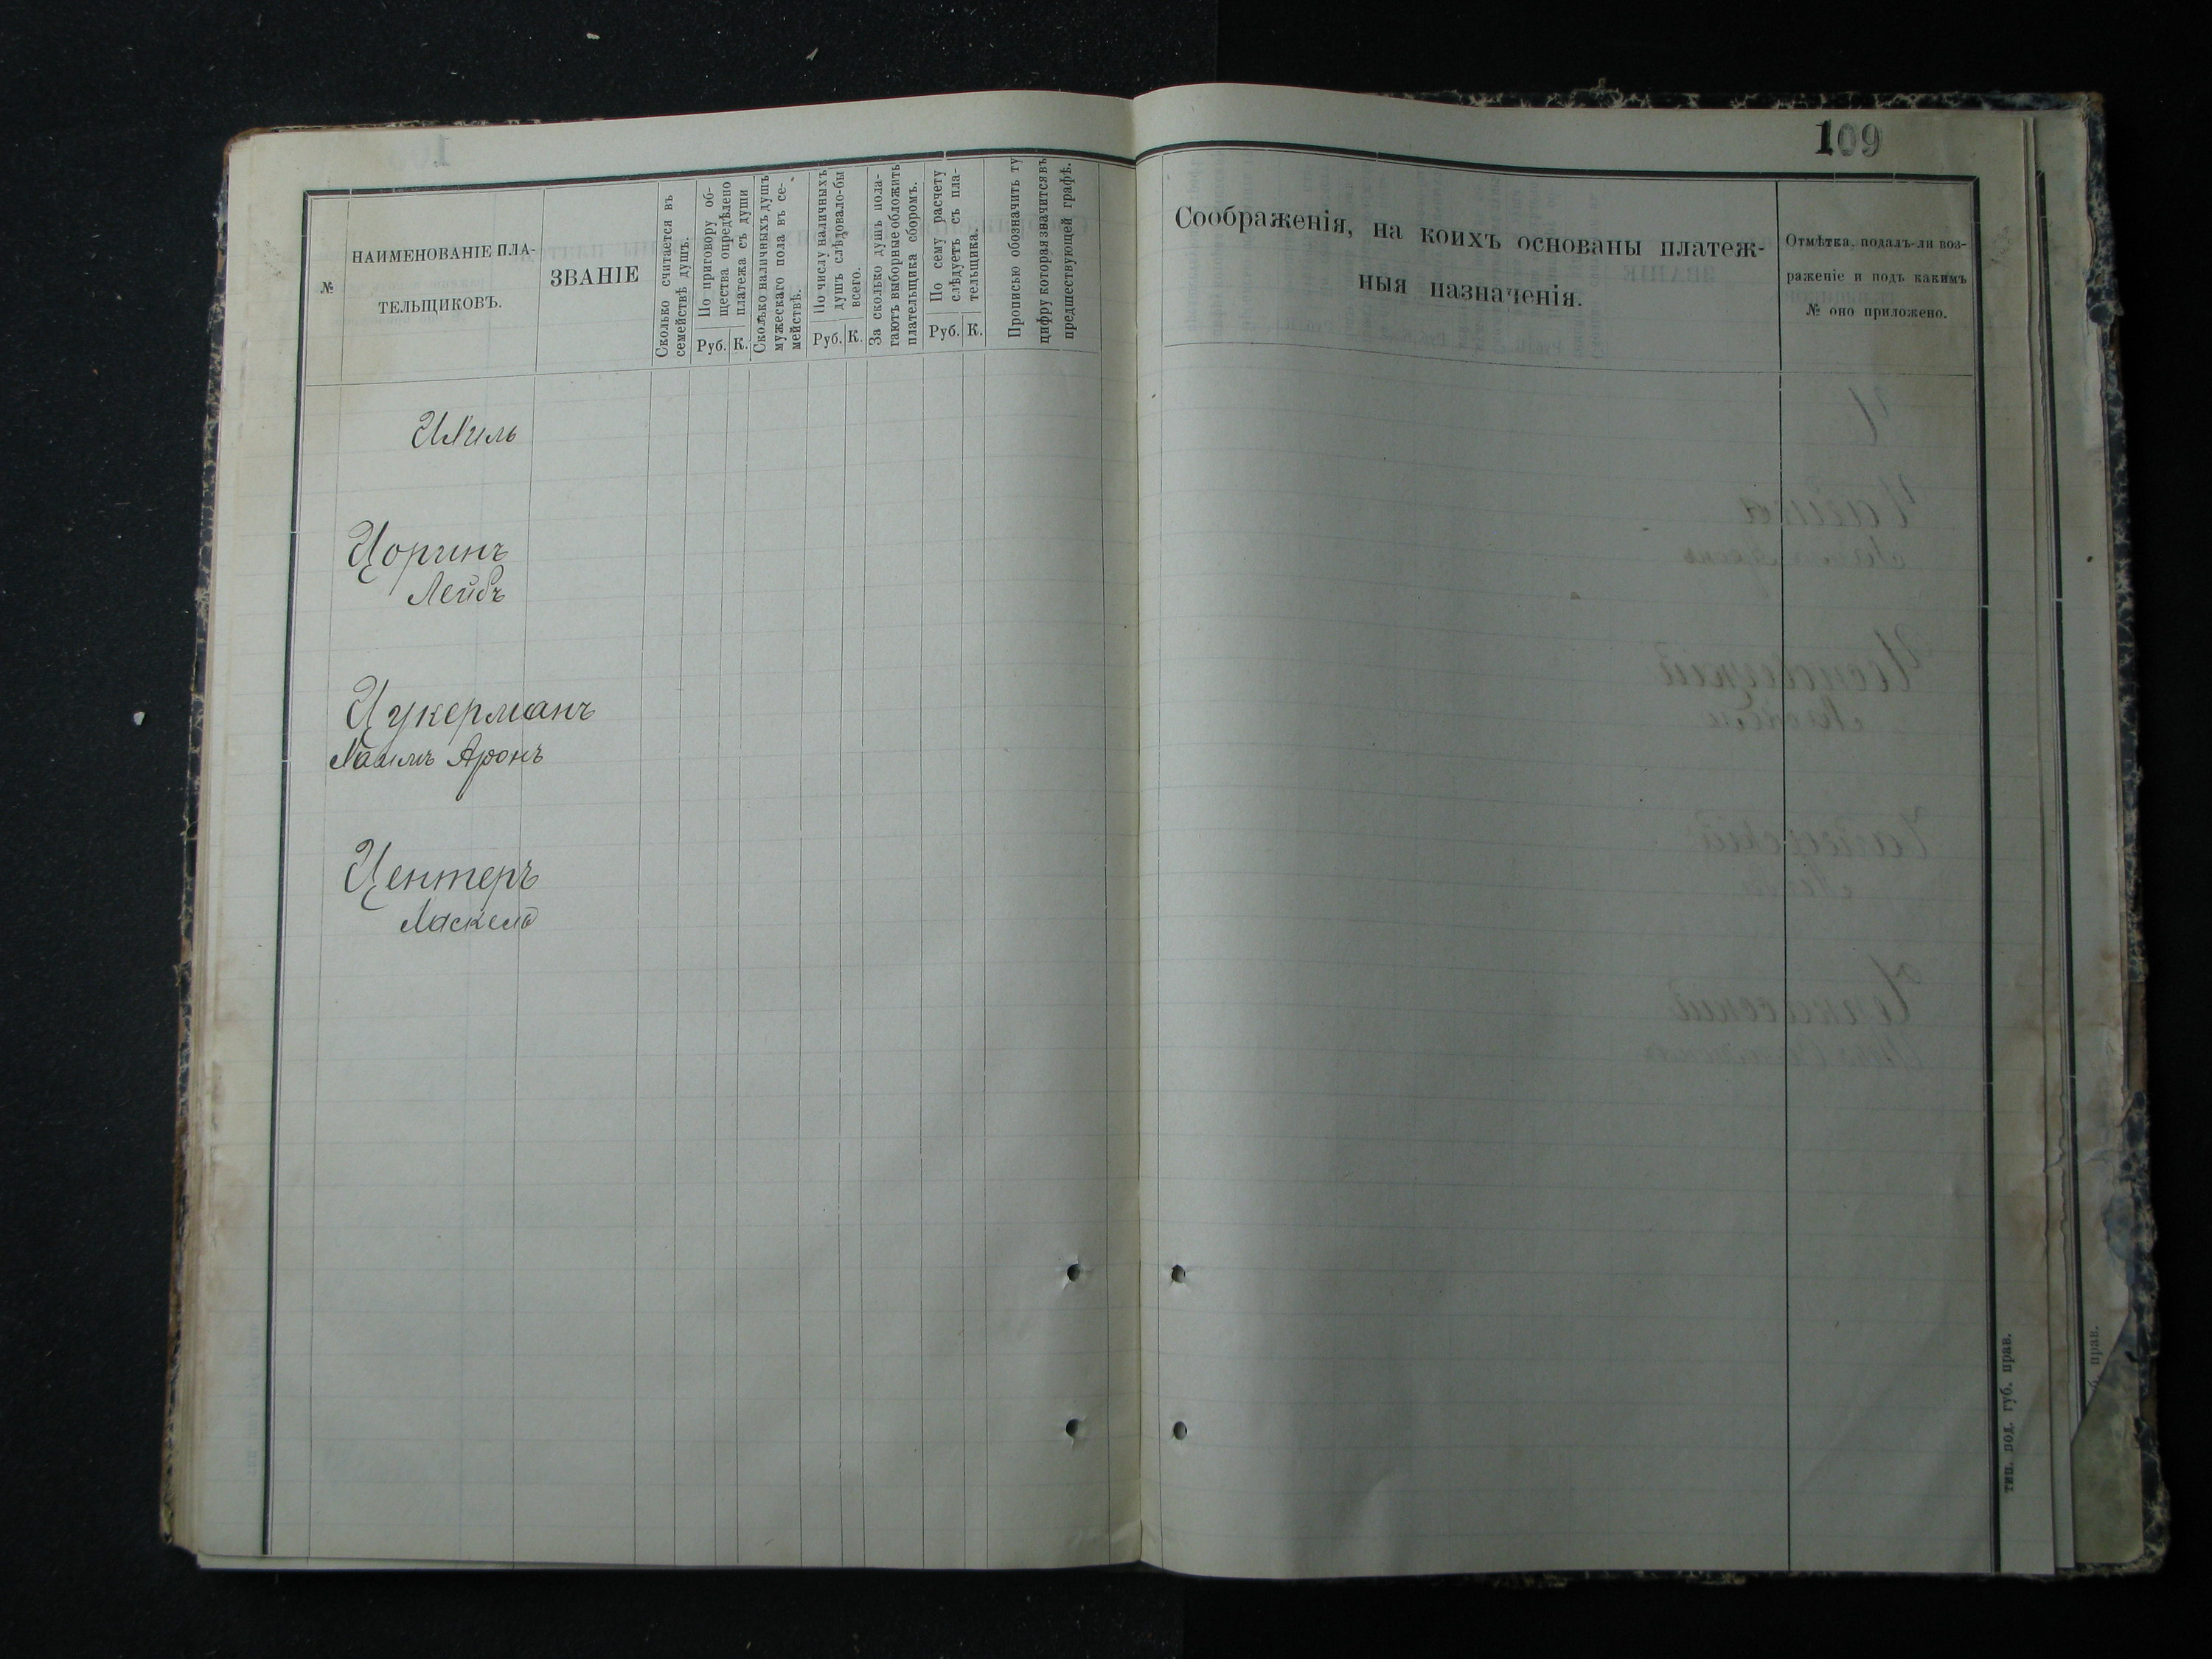 109
№
НАИМЕНОВАНІЕ ПЛА-
ТЕЛЬЩИКОВЪ.
ЗВАНІЕ
Сколько считается въ
семействѣ душъ.
По приговору об-
щества опредѣлено
платежа съ души
Руб. К.
Сколько наличныхъ душъ
мужескаго пола въ се-
мействѣ.
По числу наличныхъ
душъ слѣдовало-бы
всего.
Руб. К.
За сколько душъ пола-
гаютъ выборные обложить
плательщика сборомъ.
По сему расчету
слѣдуетъ съ пла-
тельщика.
Руб. К.
Прописью обозначить ту
цифру которая значится въ
предшествующей графѣ.
Соображенія, на коихъ основаны платеж-
ныя назначенія.
Отмѣтка, подалъ-ли воз-
раженіе и подъ какимъ
№ оно приложено.
Цоринъ
Лейбъ
Цукерманъ
Хаимъ Аронъ
Центеръ
Хаскель
тип. под. губ. прав.
б. прав.